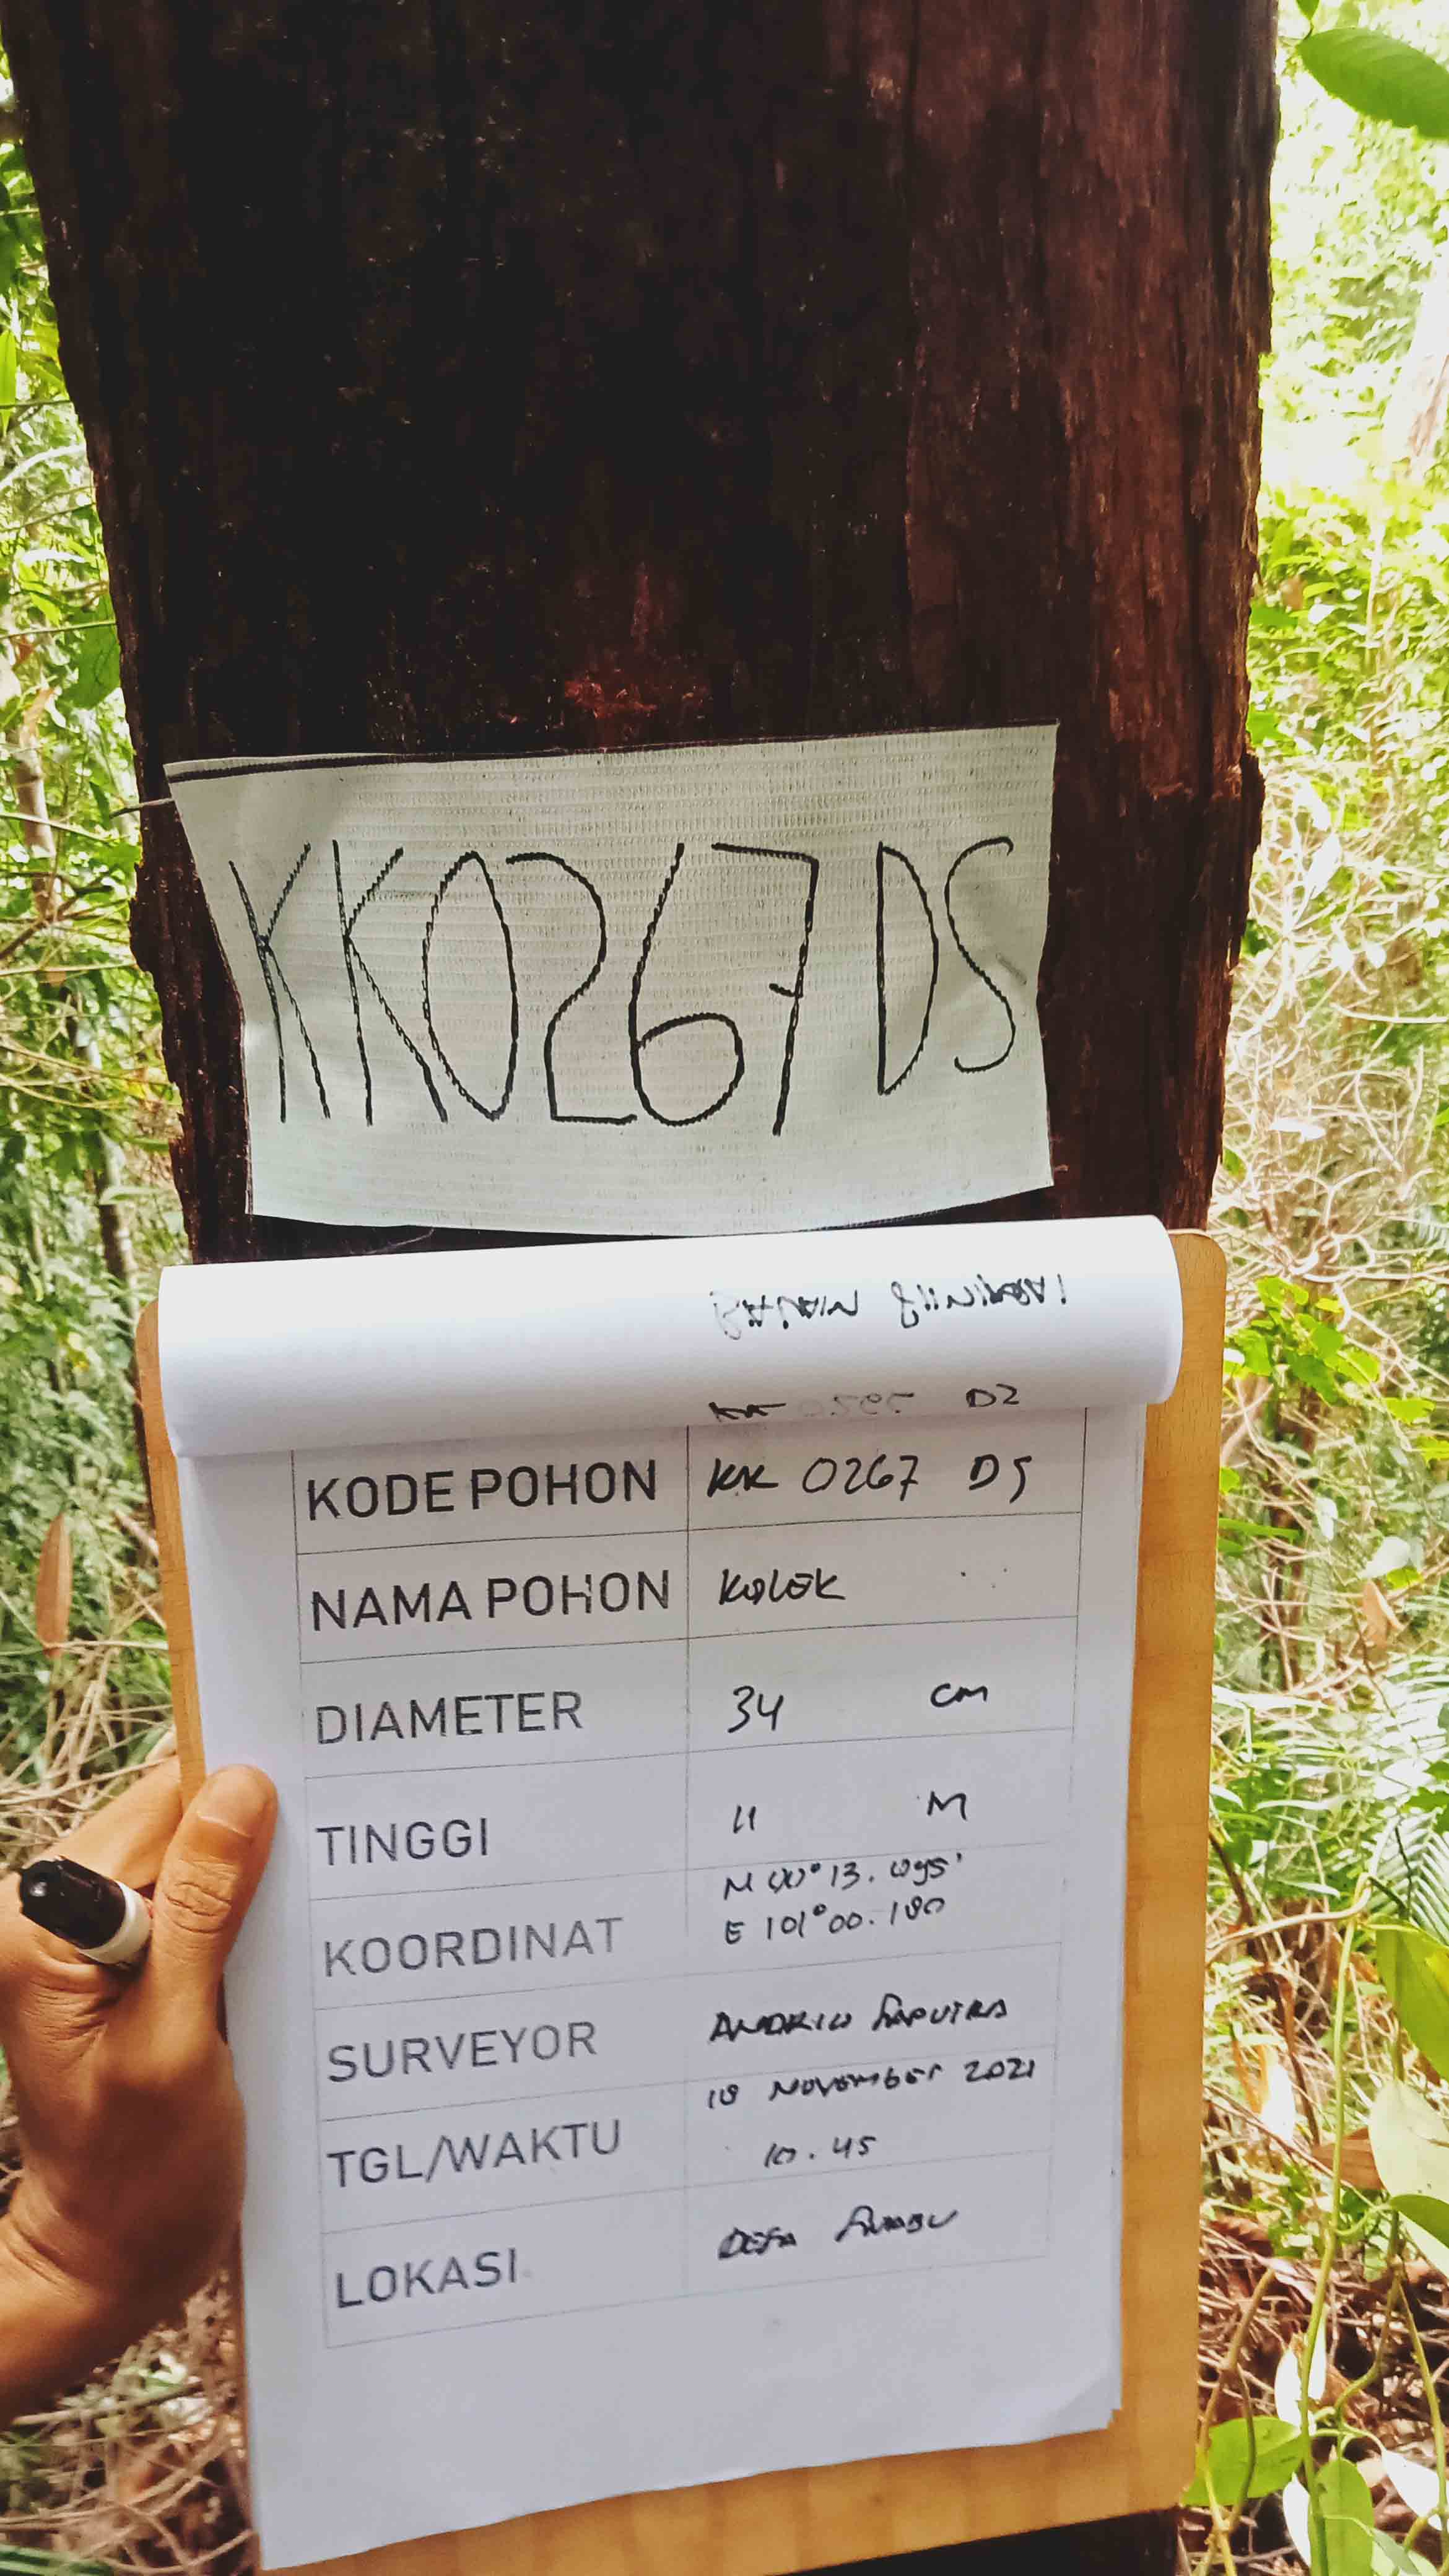 KK0267 DS
KODE POHON KK 0267 DS
NAMA POHON KOLEK
DIAMETER 34 CM
TINGGI 11 M
KOORDINAT N 00° 13. 095'
E 101° 00. 180
SURVEYOR SAPUTRA
TGL/WAKTU 18 NOVEMBER 2021
10.45
LOKASI DESA